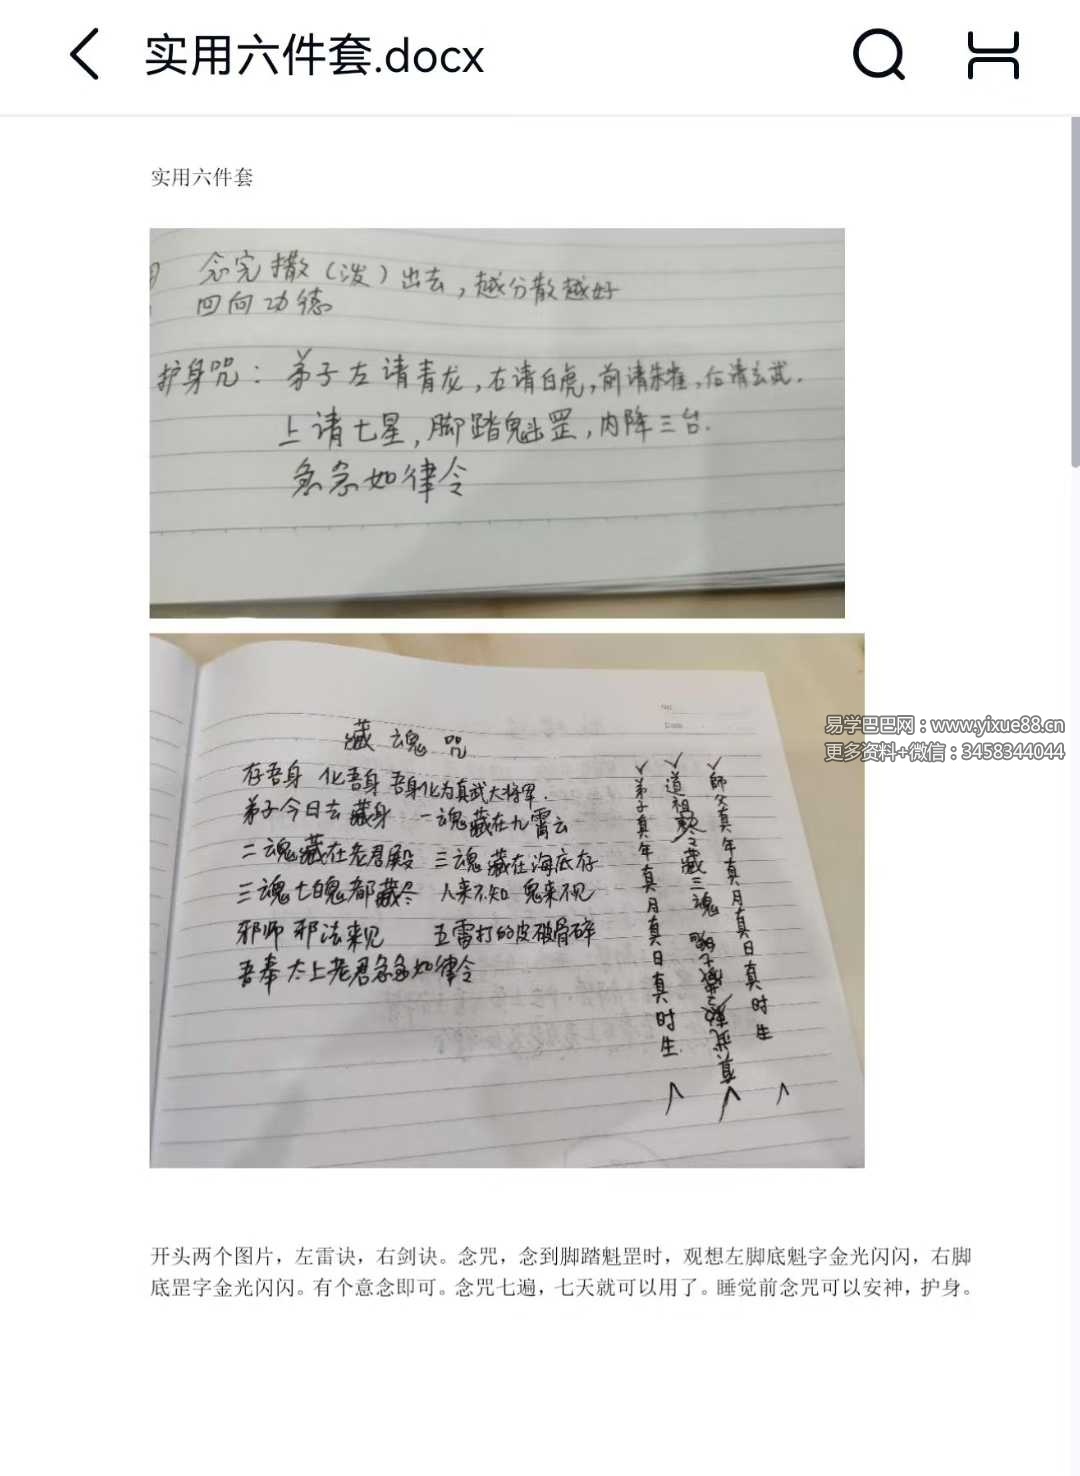 实用六件套.docx
实用六件套
念完撒（泼）出去，越分散越好
回向功德
护身咒：弟子左请青龙，右请白虎，前请朱雀，后请玄武.
上请七星，脚踏魁罡，内降三台.
急急如律令
藏魂咒
存吾身 化吾身 吾身化为真武大将军.
弟子今日去藏身 一魂藏在九霄云
二魂藏在老君殿 三魂藏在海底存
三魂七魄都藏尽 人来不知 鬼来不见
邪师邪法来见 五雷打的皮破骨碎
吾奉太上老君急急如律令
师父真年真月真日真时生
道祖 藏三魂
弟子真年真月真日真时生
易学巴巴网：www.yixue88.cn
更多资料+微信：3458344044
开头两个图片，左雷诀，右剑诀。念咒，念到脚踏魁罡时，观想左脚底魁字金光闪闪，右脚
底罡字金光闪闪。有个意念即可。念咒七遍，七天就可以用了。睡觉前念咒可以安神，护身。